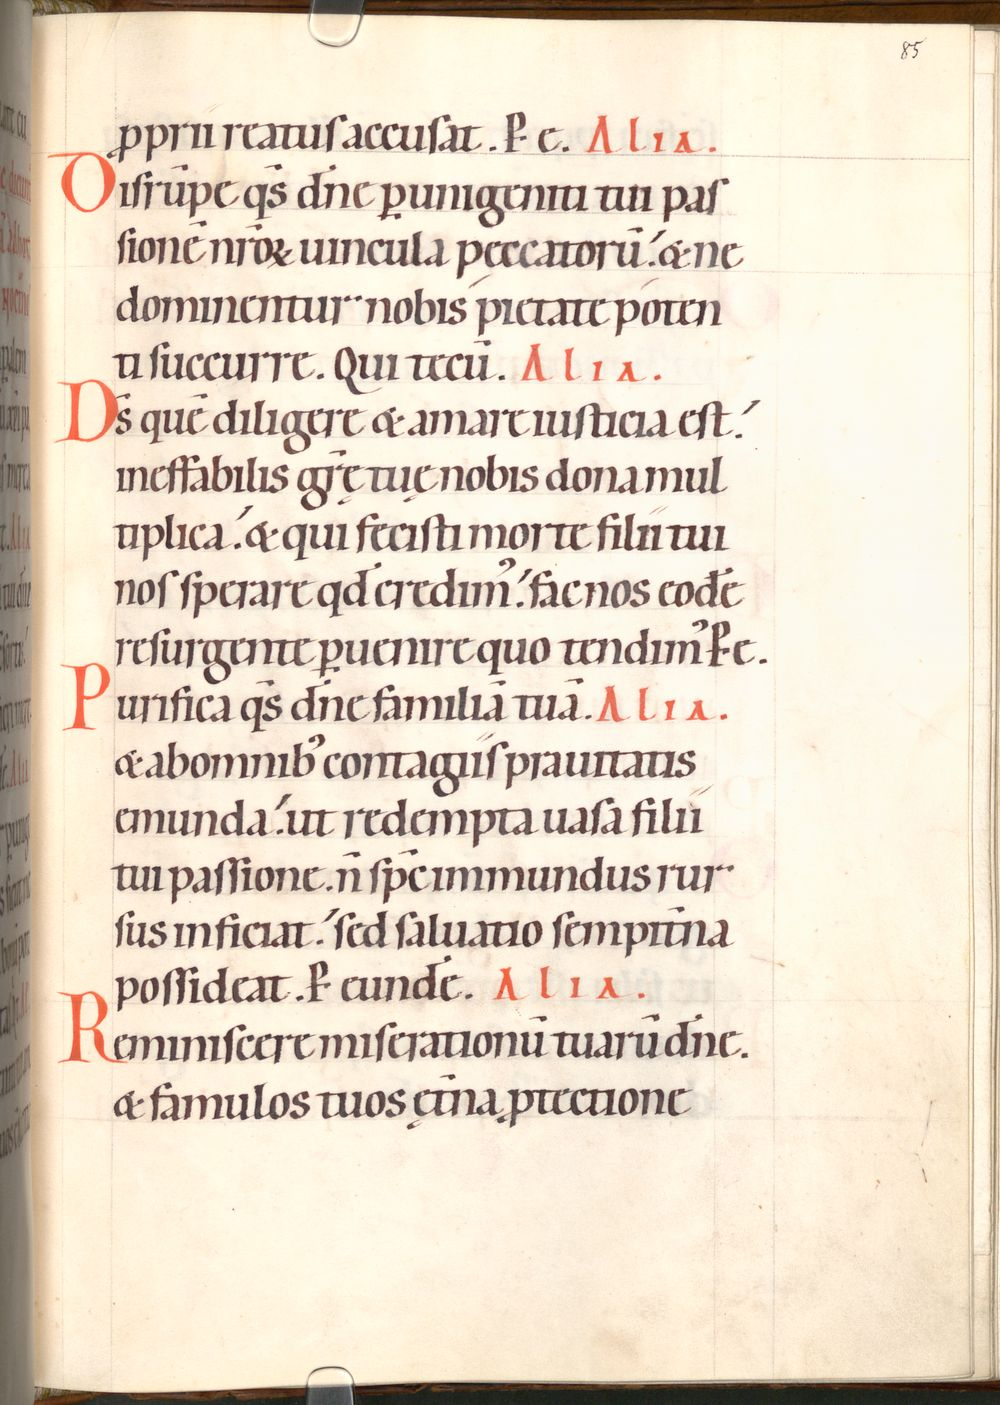 85
ꝓprii reatus accusat. P̶ e. Alia.
Disrūpe qs̄ dn̄e ꝑ unigeniti tui pas
sionē nr̄oꝝ uincula peccatorū. & ne
dominentur nobis pietate poten
ti succurre. Qui tecū. Alia.
Ds̄ quē diligere & amare iusticia est.
ineffabilis gr̄ę tuę nobis dona mul
tiplica. & qui fecisti morte filii tui
nos sperare qđ credimꝰ. fac nos eodē
resurgente ꝑuenire quo tendimꝰ P̶ e.
Purifica qs̄ dn̄e familiā tuā. Alia.
& ab omnibꝰ contagiis prauitatis
emunda. ut redempta uasa filii
tui passione. n̄ sp̄c immundus rur
sus inficiat. sed saluatio sempit̄na
possideat. P̶ eundē. Alia.
Reminiscere miserationū tuarū dn̄e.
& famulos tuos ęt̄na ꝓtectione